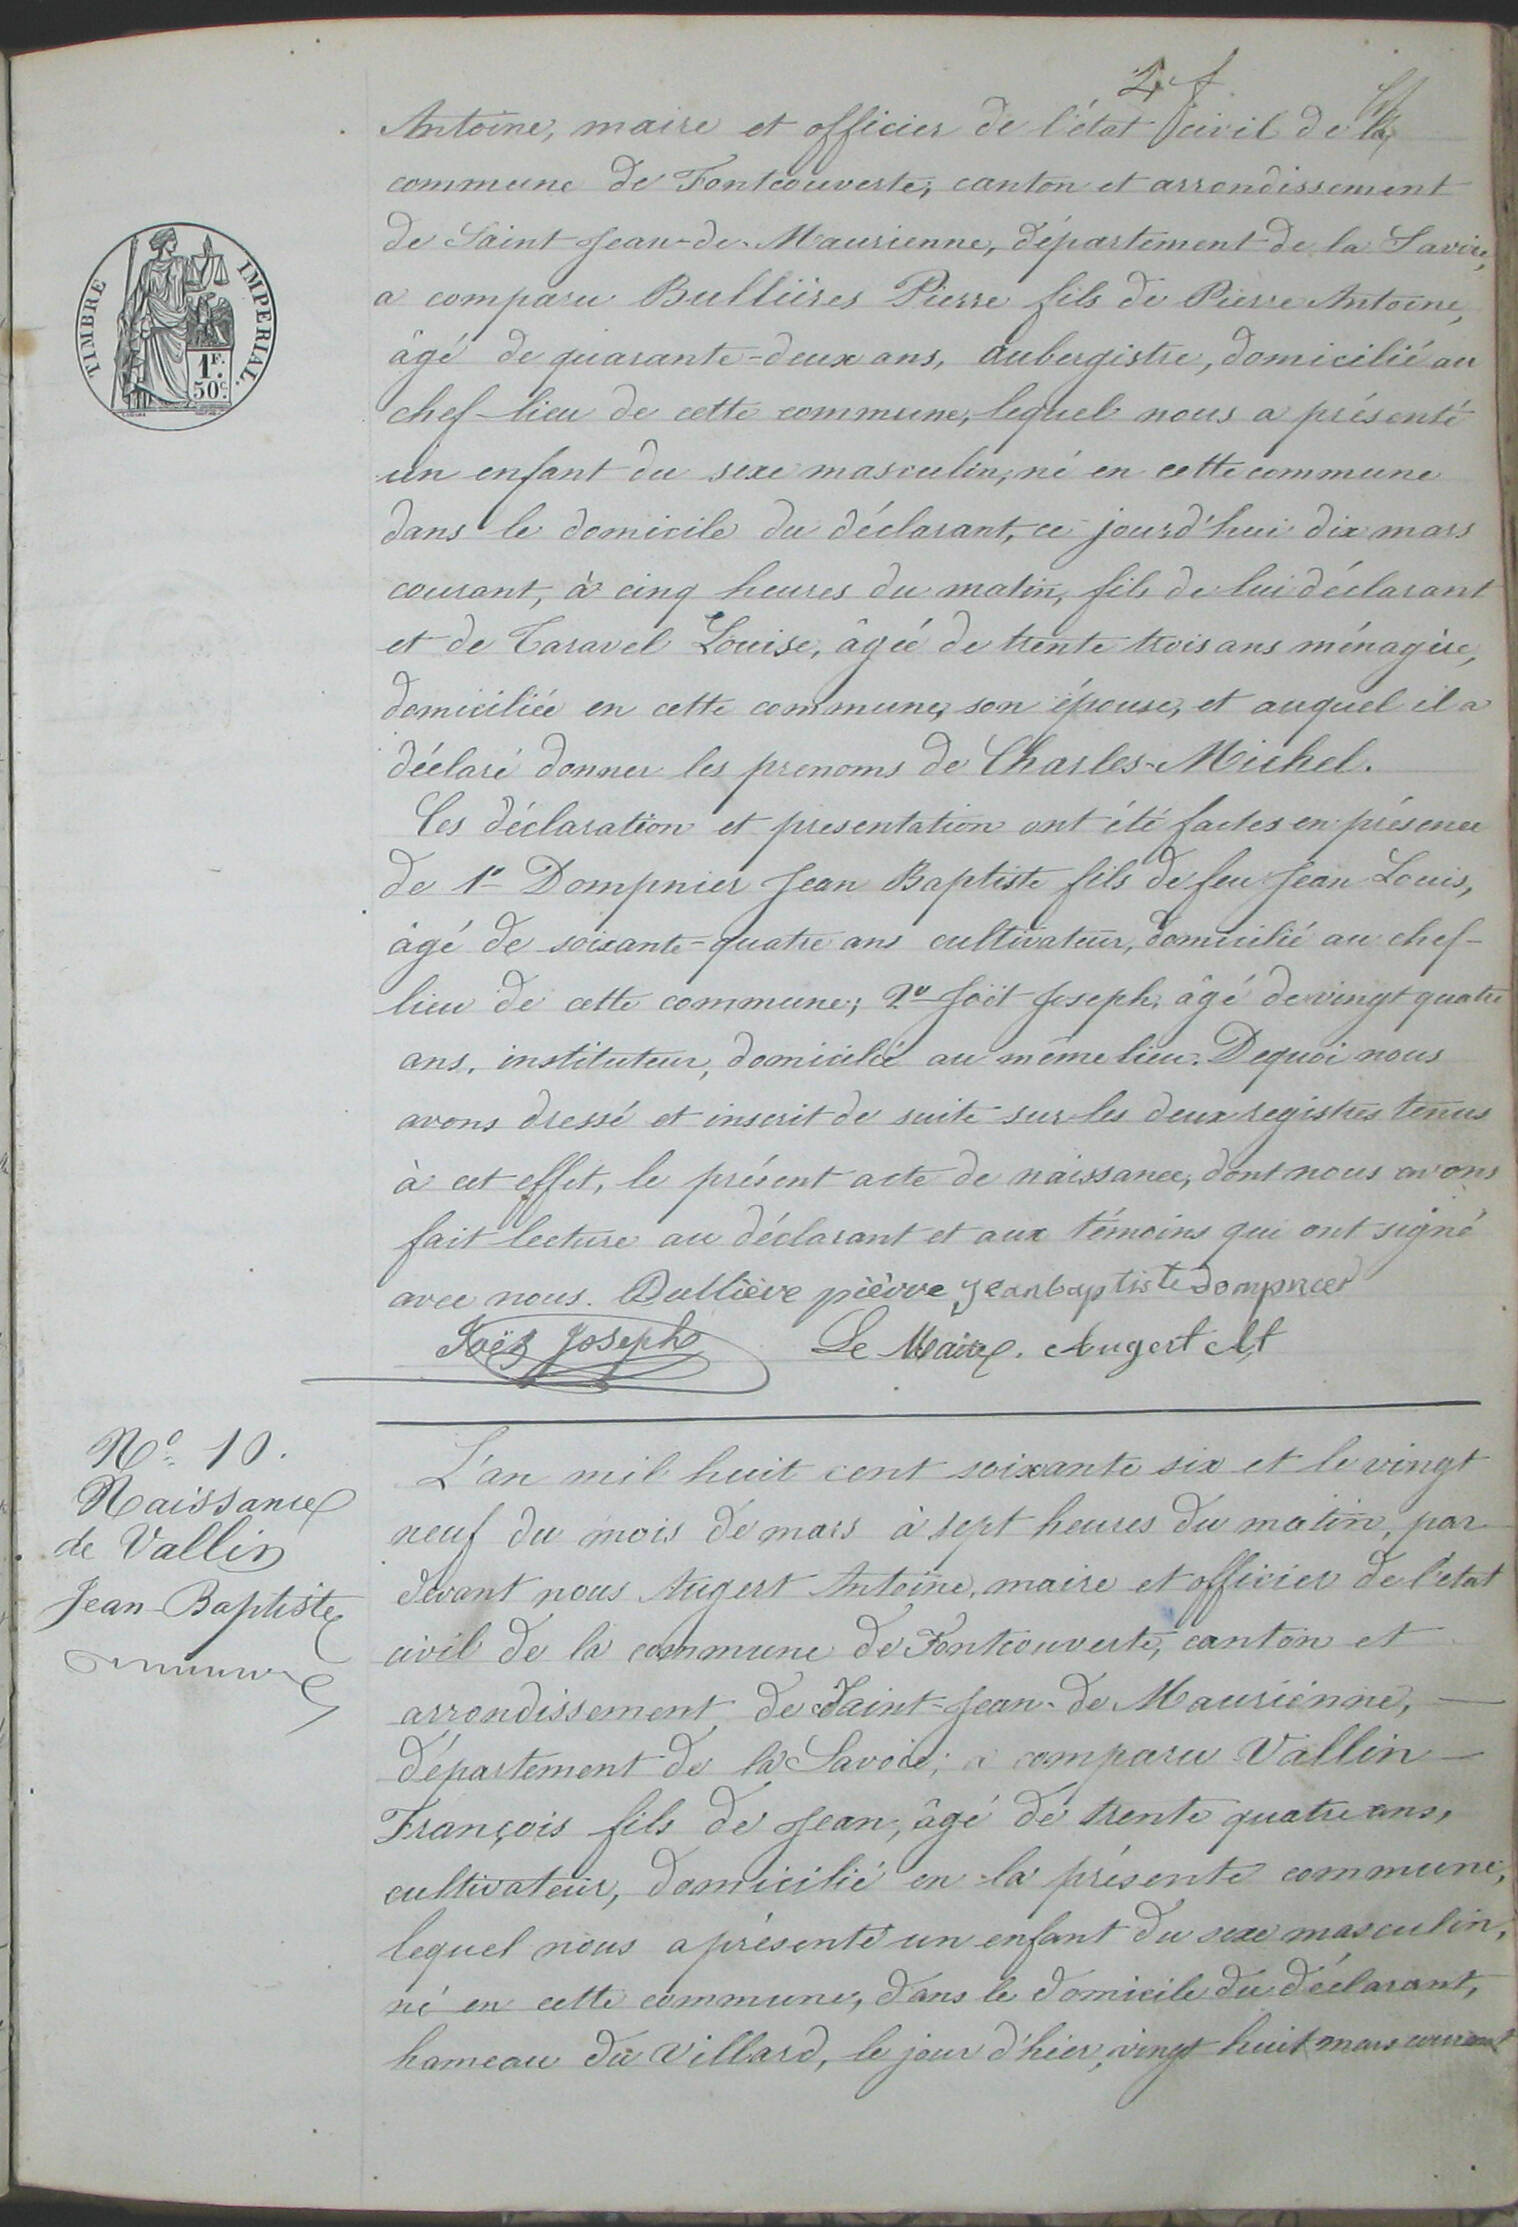 Antoine, maire et officier de l'état civil de la
commune de Fontcouverte, canton et arrondissement
de Saint Jean-de-Maurienne, département de la Savoie,
a comparu Bullières Pierre fils de Pierre Antoine,
âgé de quarante-deux ans, aubergiste, domicilié au
chef-lieu de cette commune, lequel nous a présenté
un enfant du sexe masculin, né en cette commune
dans le domicile du déclarant, ce jourd'hui dix mars
courant, à cinq heures du matin, fils de lui déclarant
et de Taravel Louise, âgée de trente trois ans ménagère,
domiciliée en cette commune, son épouse, et auquel il a
déclaré donner les prenoms de Charles-Michel.
Ces déclaration et presentation ont été faites en présence
de 1º Dompnier Jean Baptiste fils de feu Jean Louis,
âgé de soixante-quatre ans cultivateur, domicilié au chef-
lieu de cette commune; 2º Joët Joseph, âgé de vingt quatre
ans, instituteur, domicilié au même lieu. Dequoi nous
avons dressé et inscrit de suite sur les deux registres tenus
à cet effet, le présent acte de naissance, dont nous avons
fait lecture au déclarant et aux témoins qui ont signé
avec nous. Bullière pièrre jeanbaptiste dompnier
Joët Joseph Le Maire. Augert At
TIMBRE IMPERIAL.
1F.
50c.
Nº 10.
Naissance
de Vallin
Jean-Baptiste
L'an mil huit cent soixante six et le vingt
neuf du mois de mars à sept heures du matin, par
devant nous Augert Antoine, maire et officier de l'état
civil de la commune de Fontcouverte, canton et
arrondissement de Saint-Jean-de Maurienne,
département de la Savoie; a comparu Vallin
François fils de Jean, âgé de trente quatre ans,
cultivateur, domicilié en la présente commune,
lequel nous a présenté un enfant du sexe masculin,
né en cette commune, dans le domicile du déclarant,
hameau du Villard, le jour d'hier, vingt huit mars courant